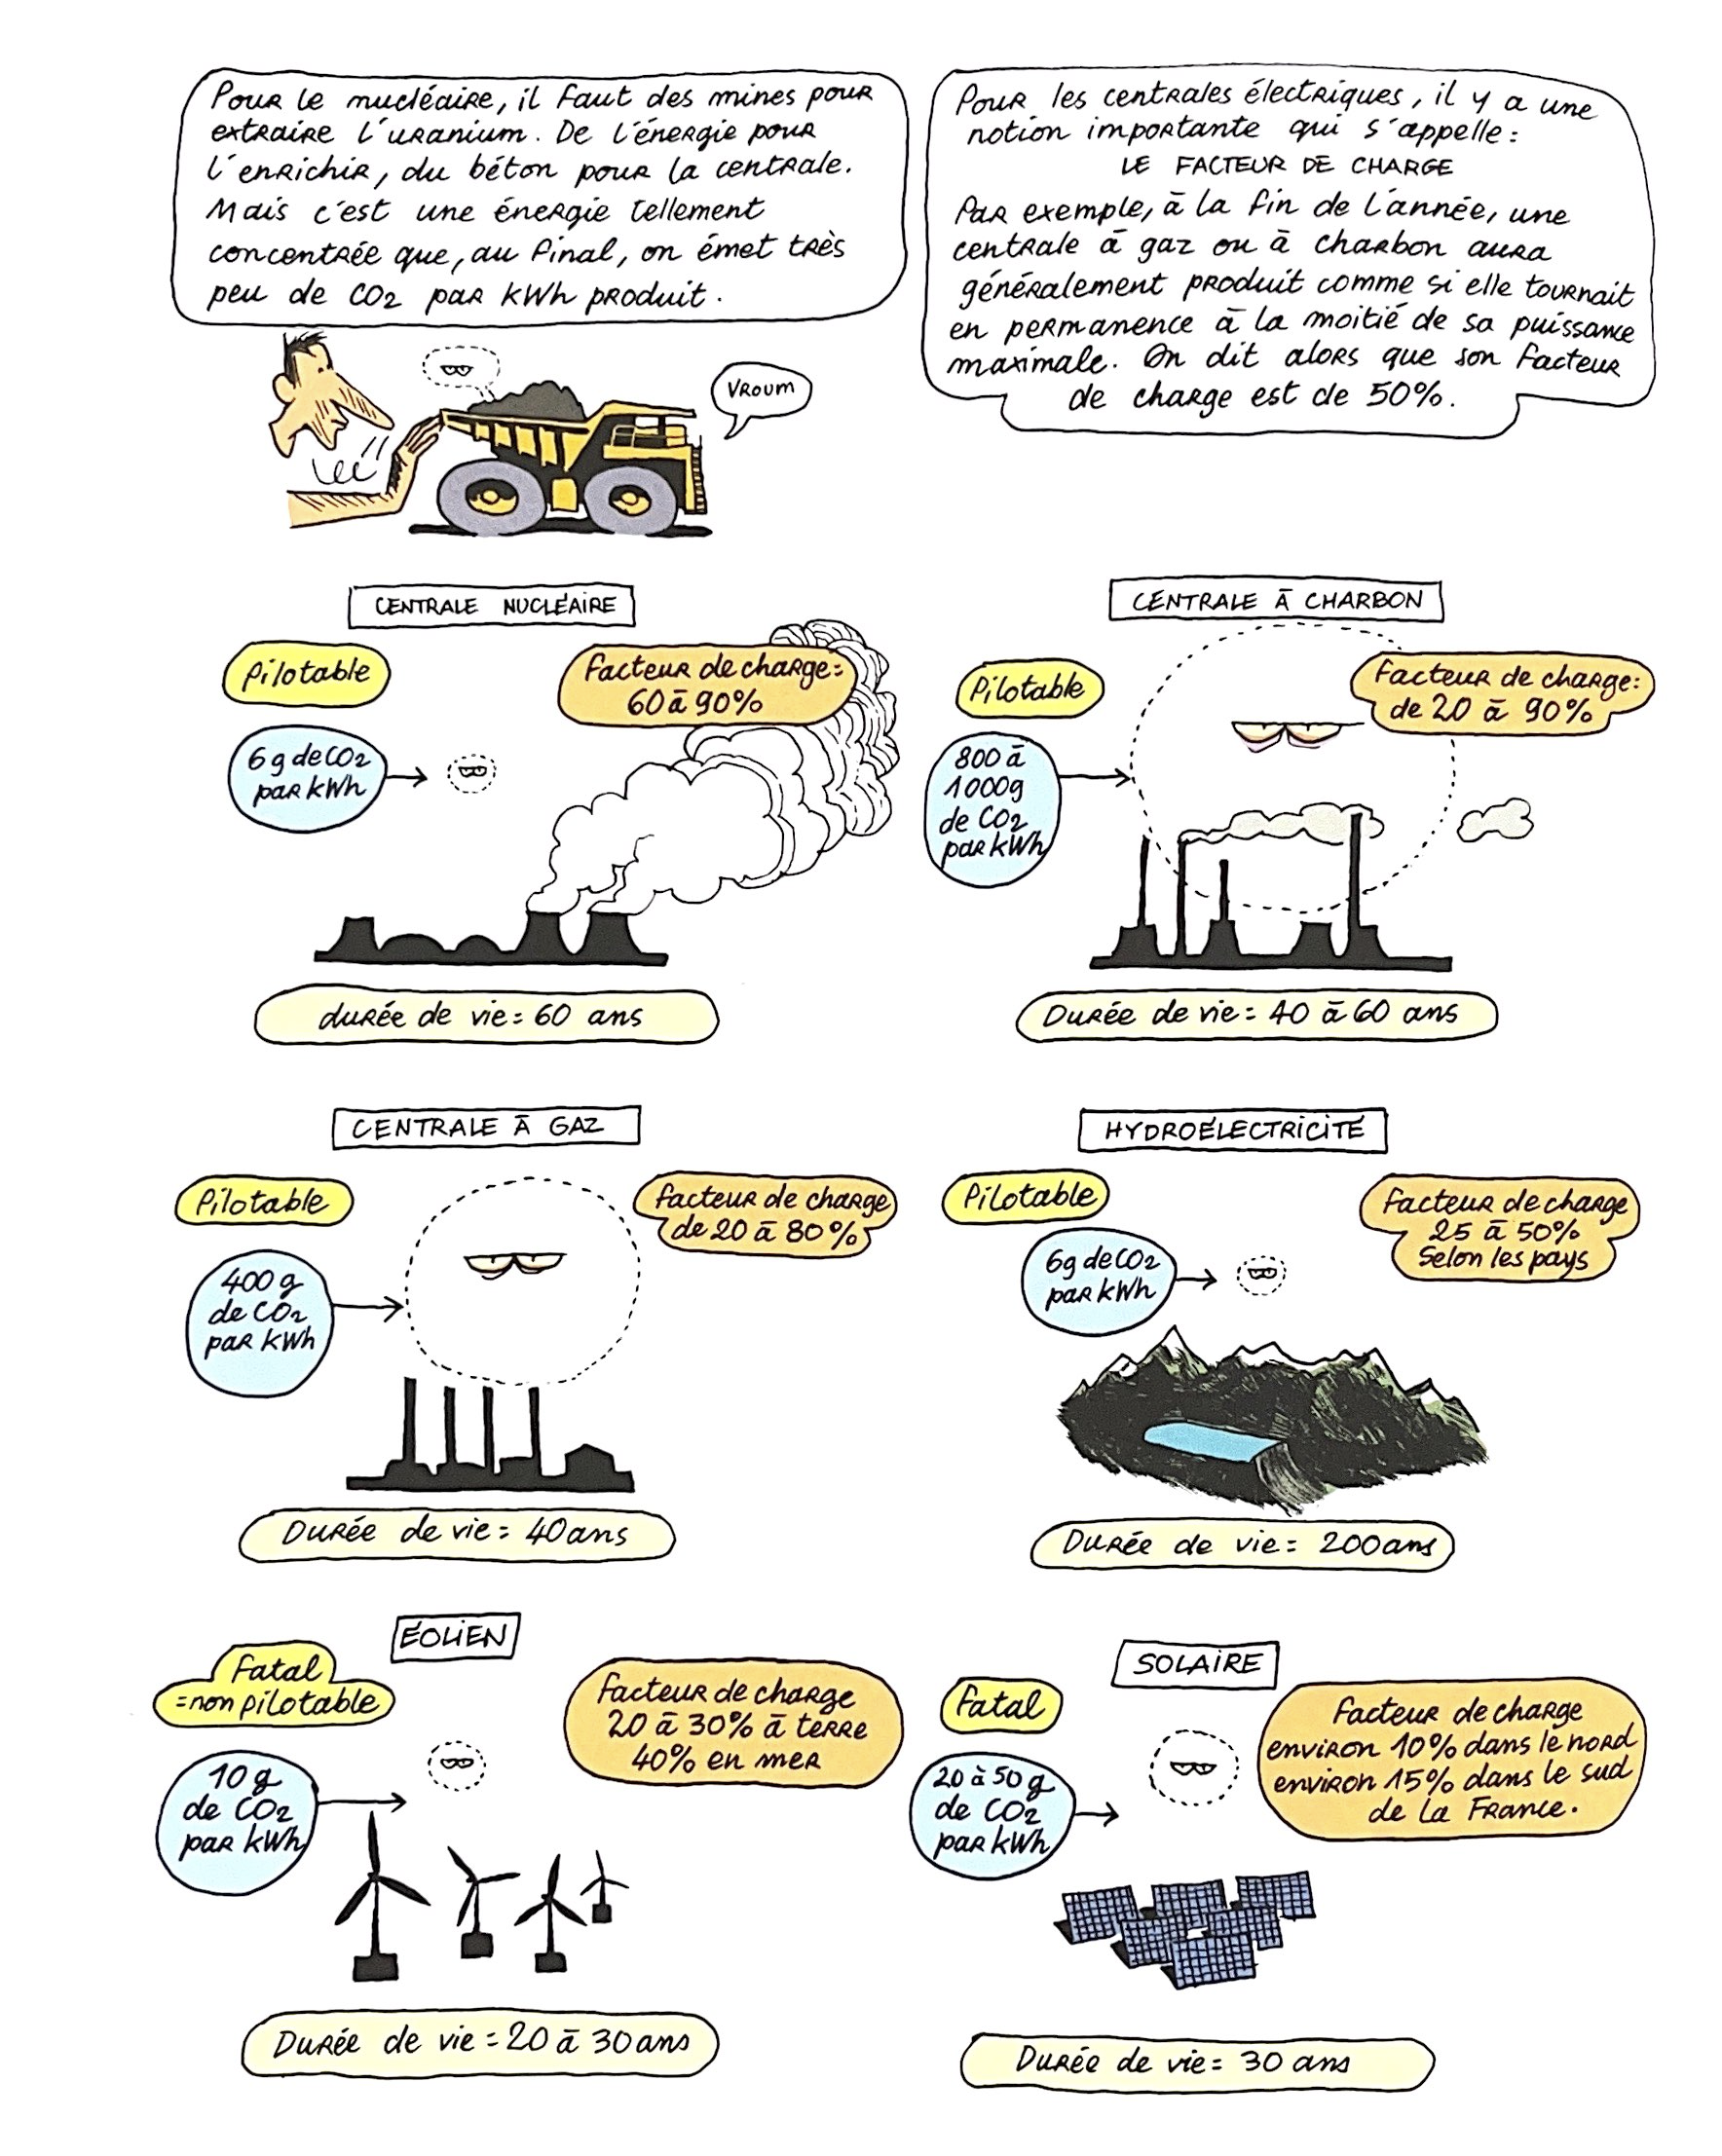 Pour le nucléaire, il faut des mines pour
extraire l'uranium. De l'énergie pour
l'enrichir, du béton pour la centrale.
Mais c'est une énergie tellement
concentrée que, au final, on émet très
peu de CO2 par kWh produit.
VROUM
Pour les centrales électriques, il y a une
notion importante qui s'appelle:
LE FACTEUR DE CHARGE
Par exemple, à la fin de l'année, une
centrale à gaz ou à charbon aura
généralement produit comme si elle tournait
en permanence à la moitié de sa puissance
maximale. On dit alors que son facteur
de charge est de 50%.
CENTRALE NUCLÉAIRE
Pilotable
Facteur de charge:
60 à 90%
6g de CO2
par kWh
durée de vie = 60 ans
CENTRALE À CHARBON
Pilotable
Facteur de charge:
de 20 à 90%
800 à
1000g
de CO2
par kWh
Durée de vie = 40 à 60 ans
CENTRALE À GAZ
Pilotable
Facteur de charge
de 20 à 80%
400g
de CO2
par kWh
Durée de vie = 40 ans
HYDROÉLECTRICITÉ
Pilotable
Facteur de charge
25 à 50%
Selon les pays
6g de CO2
par kWh
Durée de vie = 200 ans
ÉOLIEN
Fatal
=non pilotable
Facteur de charge
20 à 30% à terre
40% en mer
10g
de CO2
par kWh
Durée de vie = 20 à 30 ans
SOLAIRE
Fatal
Facteur de charge
environ 10% dans le nord
environ 15% dans le sud
de la France.
20 à 50g
de CO2
par kWh
Durée de vie = 30 ans